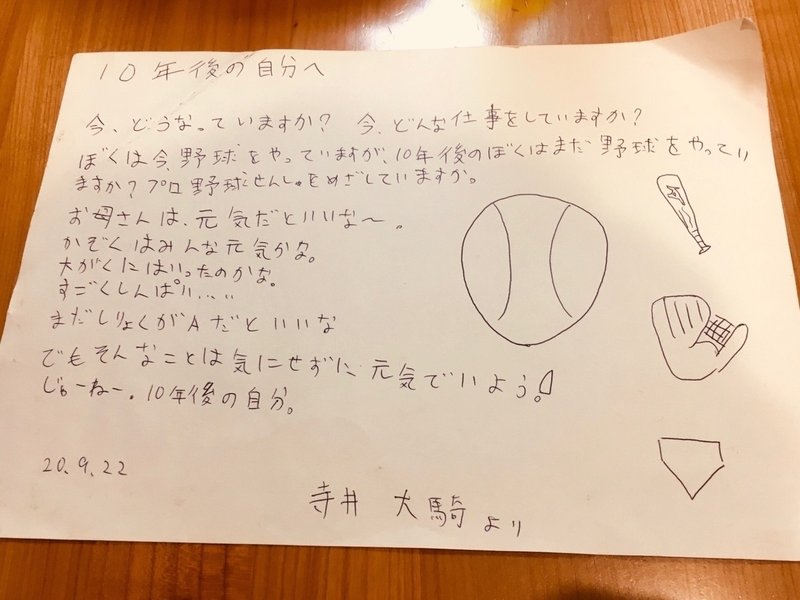 10年後の自分へ
今、どうなっていますか? 今、どんな仕事をしていますか?
ぼくは今、野球をやっていますが、10年後のぼくはまだ野球をやってい
ますか?プロ野球せんしゅをめざしていますか。
お母さんは、元気だといいな〜。
かぞくはみんな元気かな。
大がくにはいったのかな。
すごくしんぱい、、、、
まだしりょくがAだといいな
でもそんなことは気にせずに、元気でいよう!
じゅーねー。10年後の自分。
20.9.22
寺井 大騎 より